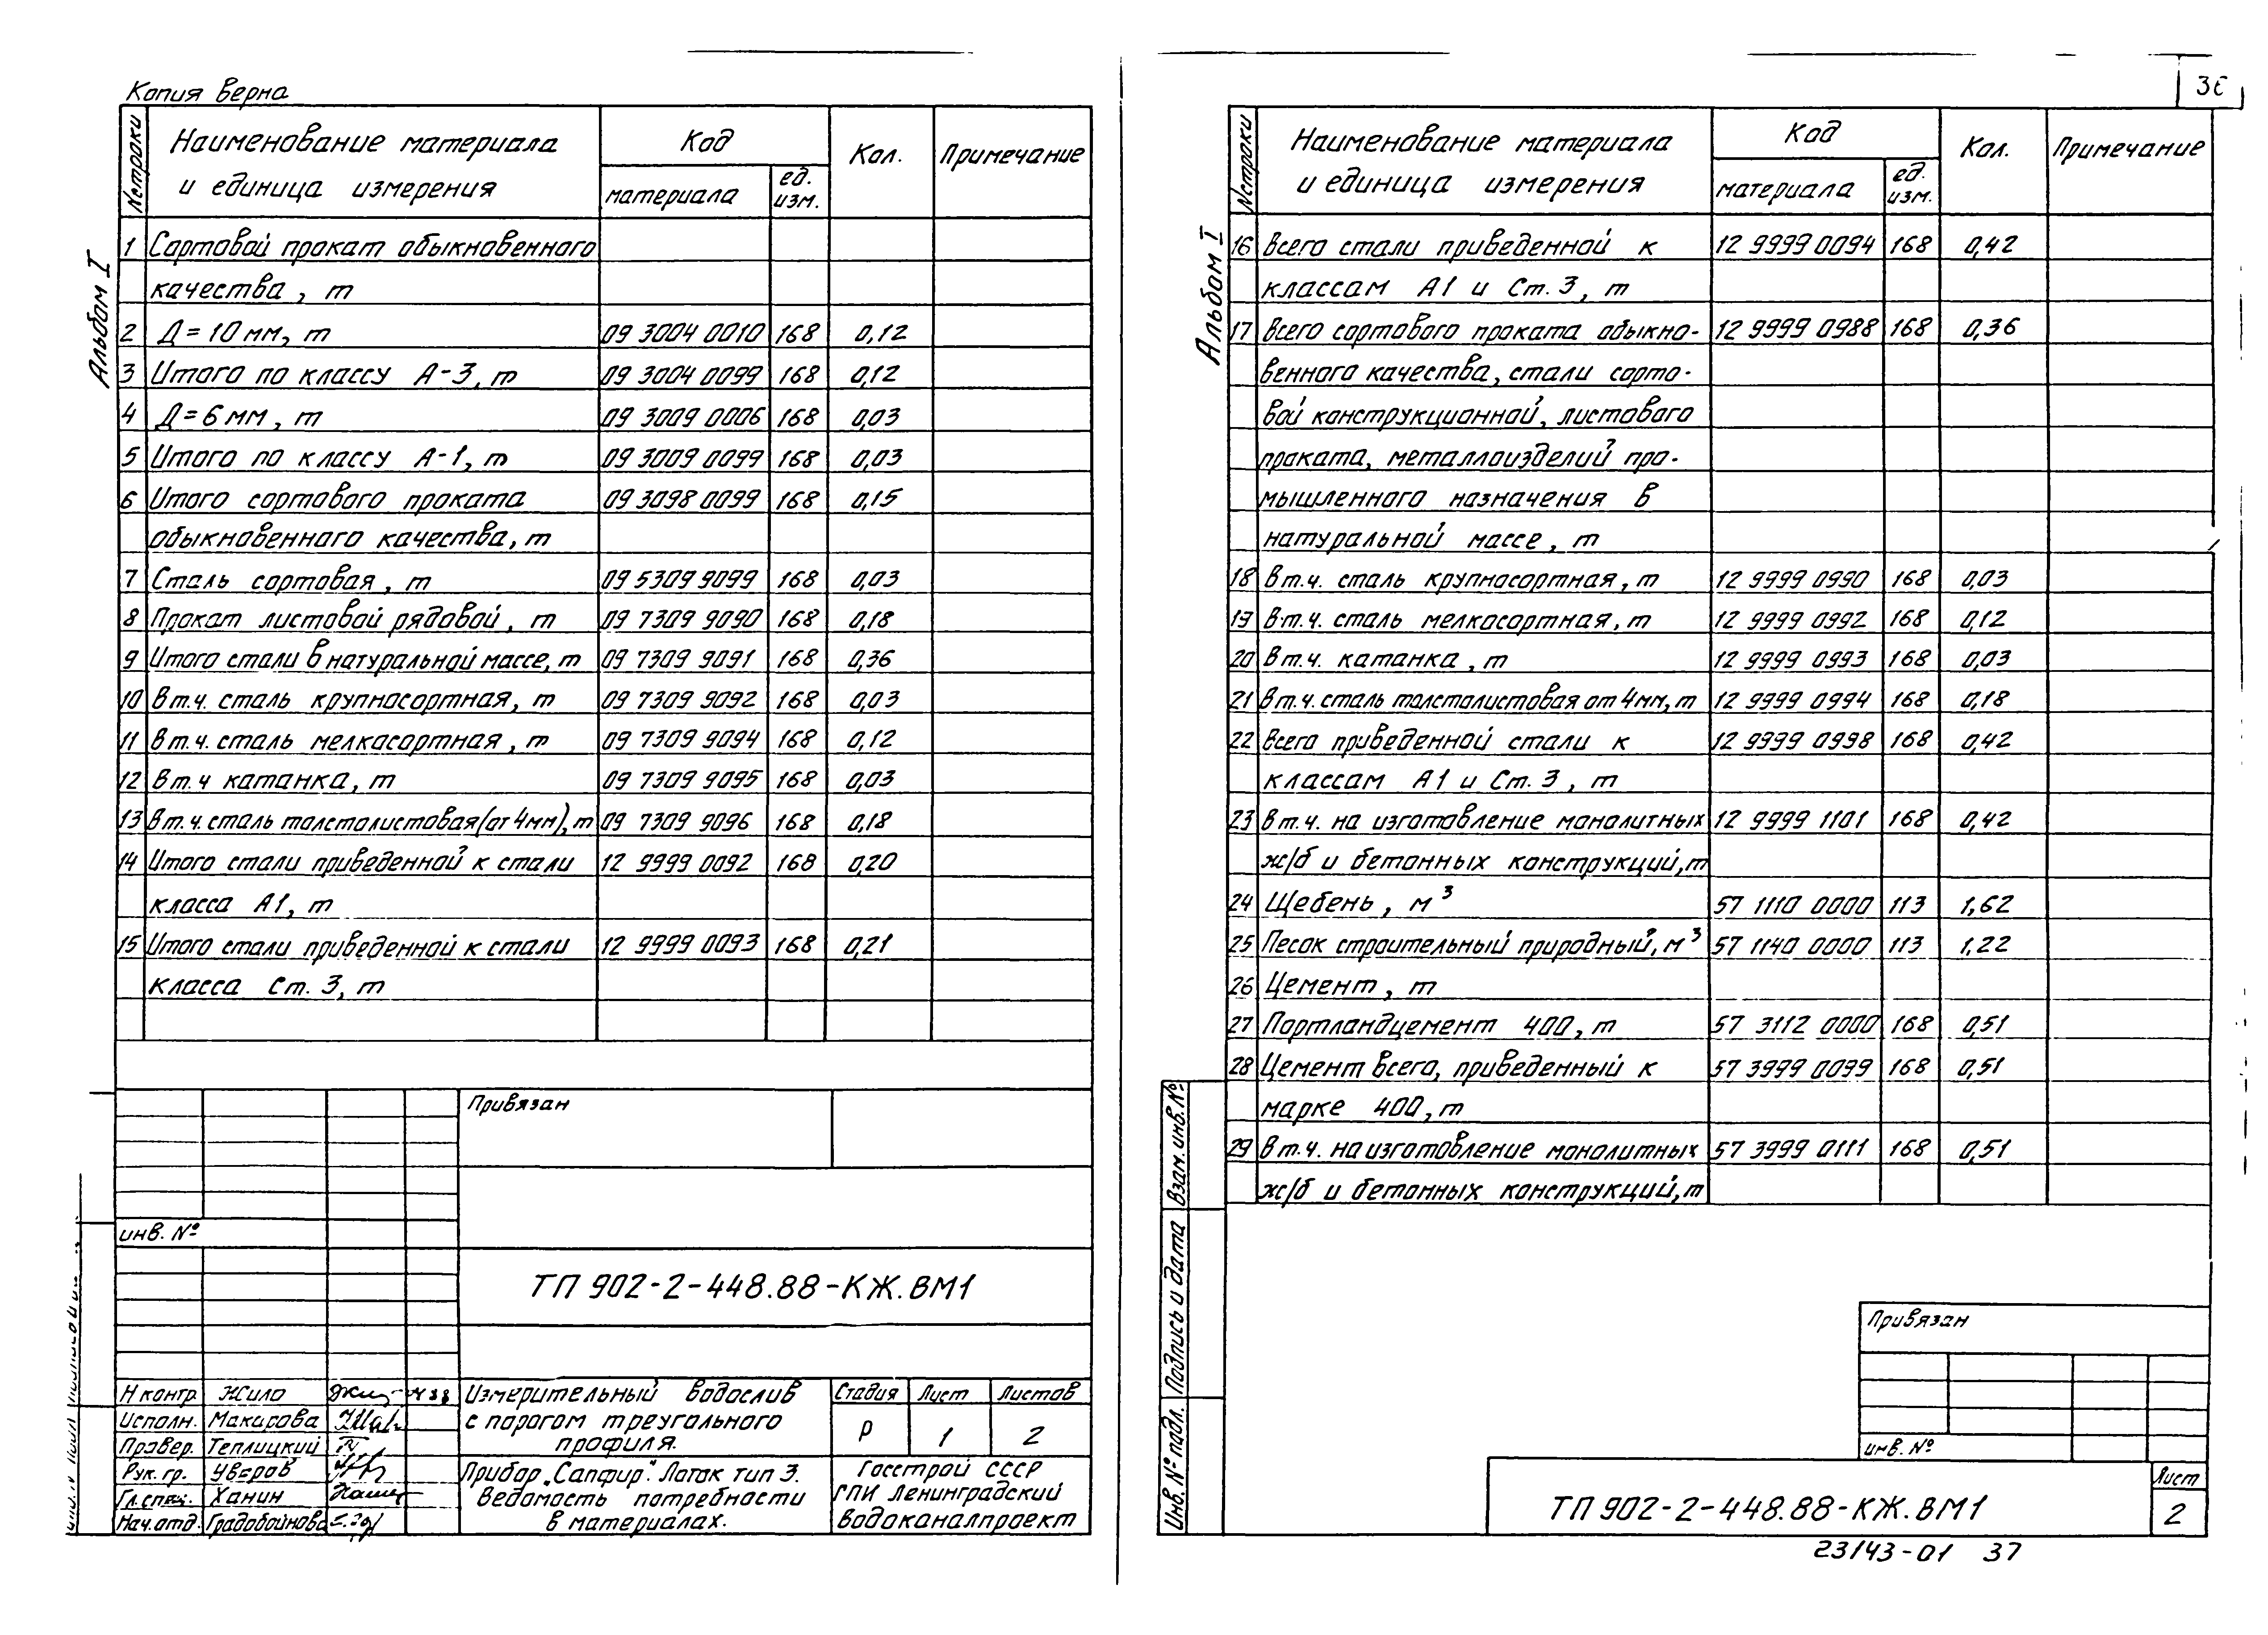 Копия верна
Альбом I
№ строки Наименование материала и единица измерения Код Кол. Примечание
материала ед. изм.
1 Сортовой прокат обыкновенного
качества, т
2 Д=10мм, т 09 3004 0010 168 0,12
3 Итого по классу А-3, т 09 3004 0099 168 0,12
4 Д=6мм, т 09 3009 0006 168 0,03
5 Итого по классу А-1, т 09 3009 0099 168 0,03
6 Итого сортового проката 09 3098 0099 168 0,15
обыкновенного качества, т
7 Сталь сортовая, т 09 5309 9099 168 0,03
8 Прокат листовой рядовой, т 09 7309 9090 168 0,18
9 Итого стали в натуральной массе, т 09 7309 9091 168 0,36
10 в т.ч. сталь крупносортная, т 09 7309 9092 168 0,03
11 в т.ч. сталь мелкосортная, т 09 7309 9094 168 0,12
12 в т.ч катанка, т 09 7309 9095 168 0,03
13 в т.ч. сталь толстолистовая (от 4мм), т 09 7309 9096 168 0,18
14 Итого стали приведенной к стали 12 9999 0092 168 0,20
класса А1, т
15 Итого стали приведенной к стали 12 9999 0093 168 0,21
класса Ст. 3, т
Привязан
инв. №
ТП 902-2-448.88-КЖ.ВМ1
Н контр. Жило
Исполн. Макарова
Провер. Теплицкий
Рук. гр. Уваров
Гл.спец. Ханин
Нач.отд. Градобойнова
Измерительный водослив
с порогом треугольного
профиля.
Прибор „Сапфир". Лоток тип 3.
Ведомость потребности
в материалах.
Стадия Лист Листов
Р 1 2
Госстрой СССР
ГПИ Ленинградский
Водоканалпроект
Альбом I
№ строки Наименование материала и единица измерения Код Кол. Примечание
материала ед. изм.
16 Всего стали приведенной к 12 9999 0094 168 0,42
классам А1 и Ст. 3, т
17 Всего сортового проката обыкно- 12 9999 0988 168 0,36
венного качества, стали сорто-
вой конструкционной, листового
проката, металлоизделий про-
мышленного назначения в
натуральной массе, т
18 В т.ч. сталь крупносортная, т 12 9999 0990 168 0,03
19 в т.ч. сталь мелкосортная, т 12 9999 0992 168 0,12
20 в т.ч. катанка, т 12 9999 0993 168 0,03
21 в т.ч. сталь толстолистовая от 4мм, т 12 9999 0994 168 0,18
22 Всего приведенной стали к 12 9999 0998 168 0,42
классам А1 и Ст. 3, т
23 в т.ч. на изготовление монолитных 12 9999 1101 168 0,42
ж/б и бетонных конструкций, т
24 Щебень, м³ 57 1110 0000 113 1,62
25 Песок строительный природный, м³ 57 1140 0000 113 1,22
26 Цемент, т
27 Портландцемент 400, т 57 3112 0000 168 0,51
28 Цемент всего, приведенный к 57 3999 0099 168 0,51
марке 400, т
29 в т.ч. на изготовление монолитных 57 3999 0111 168 0,51
ж/б и бетонных конструкций, т
Взам. инв. №
Подпись и дата
Инв. № подл.
Привязан
инв. №
ТП 902-2-448.88-КЖ.ВМ1
Лист
2
23143-01 37